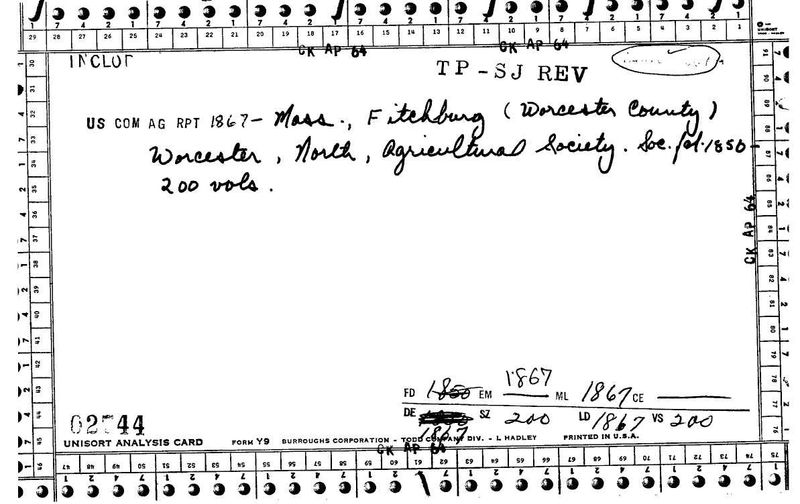 CK AP 64
CK AP 64
INCLOT
TP-SJ REV
US COM AG RPT 1867- Mass., Fitchburg (Worcester County)
Worcester, North, Agricultural Society. Soc. fd. 1850-
200 vols.
CK AP 64
FD 1850 EM 1867 ML 1867 CE
DE SZ 200 LD 1867 VS 200
1867
02544
UNISORT ANALYSIS CARD FORM Y9 BURROUGHS CORPORATION - TODD COMPANY DIV. - L HADLEY PRINTED IN U.S.A.
CK AP 64